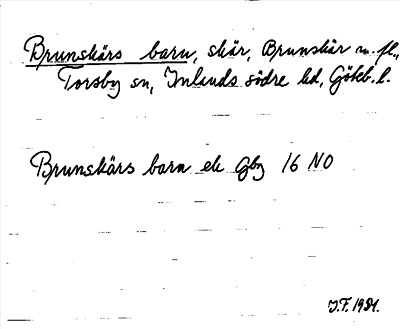 Brunskärs barn, skär, Brunskär m. fl.,
Torsby sn, Inlands södre hd, Göteb. l.
Brunskärs barn ek Gbg 16 NO
J.F. 1984.